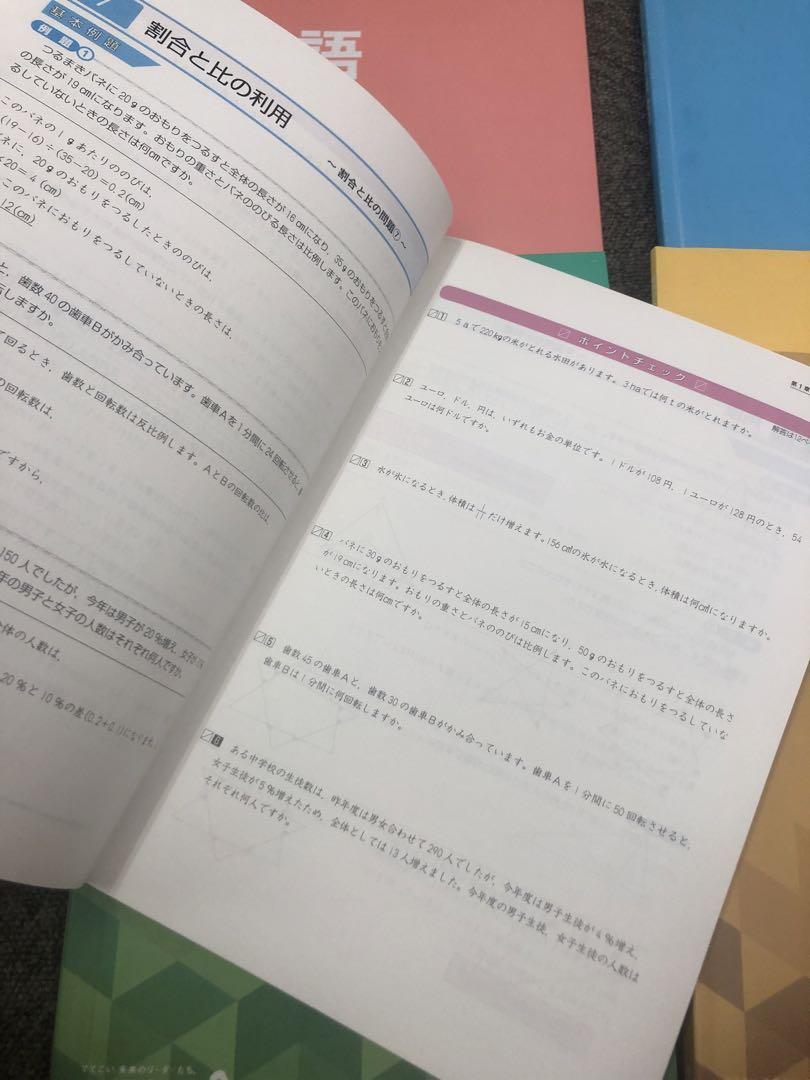 語
基本例題
割合と比の利用
~ 割合と比の問題① ~
例題 ①
つるまきバネに20gのおもりをつるすと全体の長さが16cmになり、35gのおもりをつるすと
の長さが19cmになります。おもりの重さとバネののびる長さは比例します。このバネにおもりを
るしていないときの長さは何cmですか。
このバネの1gあたりののびは、
(19−16)÷(35−20)=0.2(cm)
バネに、20gのおもりをつるしたときののびは、
20=4(cm)
このバネにおもりをつるしていないときの長さは、
12(cm)
と、歯数40の歯車Bがかみ合っています。歯車Aを1分間に24回転させると、
転しますか。
て回るとき、歯数と回転数は反比例します。AとBの回転数の比は、
の回転数は、
ですから、
150人でしたが、今年は男子が20%増え、女子が
年の男子と女子の人数はそれぞれ何人ですか。
全体の人数は、
20%と10%の差(0.2+0.1)になります。
ポイントチェック
第1章
解答は12ペ
1 5aで220kgの米がとれる水田があります。3haでは何tの米がとれますか。
2 ユーロ、ドル、円は、いずれもお金の単位です。1ドルが108円、1ユーロが128円のとき、54
ユーロは何ドルですか。
3 水が氷になるとき、体積は1/11だけ増えます。156cm³の氷が水になるとき、体積は何cm³になりますか。
4 バネに30gのおもりをつるすと全体の長さが15cmになり、50gのおもりをつるすと全体の長さ
が19cmになります。おもりの重さとバネののびは比例します。このバネにおもりをつるしていな
いときの長さは何cmですか。
5 歯数45の歯車Aと、歯数30の歯車Bがかみ合っています。歯車Aを1分間に50回転させると、
歯車Bは1分間に何回転しますか。
6 ある中学校の生徒数は、昨年度は男女合わせて290人でしたが、今年度は男子生徒が4%増え、
女子生徒が5%増えたため、全体としては13人増えました。今年度の男子生徒、女子生徒の人数は
それぞれ何人ですか。
でてこい 未来のリーダーたち。